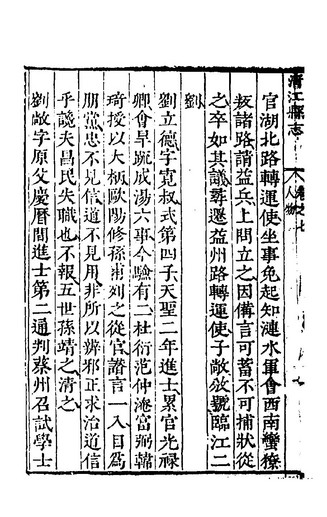 清江縣志
卷之七
人物
官湖北路轉運使坐事免起知漣水軍會西南蠻獠
叛諸路請益兵上問立之因備言可蓄不可捕狀從
之卒如其議尋遷益州路轉運使子敞攽號臨江二
劉
劉立德字寬叔式第四子天聖二年進士累官光祿
卿會旱䟽成湯六事今驗有二杜衍范仲淹富弼韓
琦授以大柄歐陽修孫甫列之從官譖言一入目為
朋黨忠不見信道不見用非所以辨邪正求治道信
乎讒夫昌民失職也不報五世孫靖之清之
劉敞字原父慶曆間進士第二通判蔡州召試學士